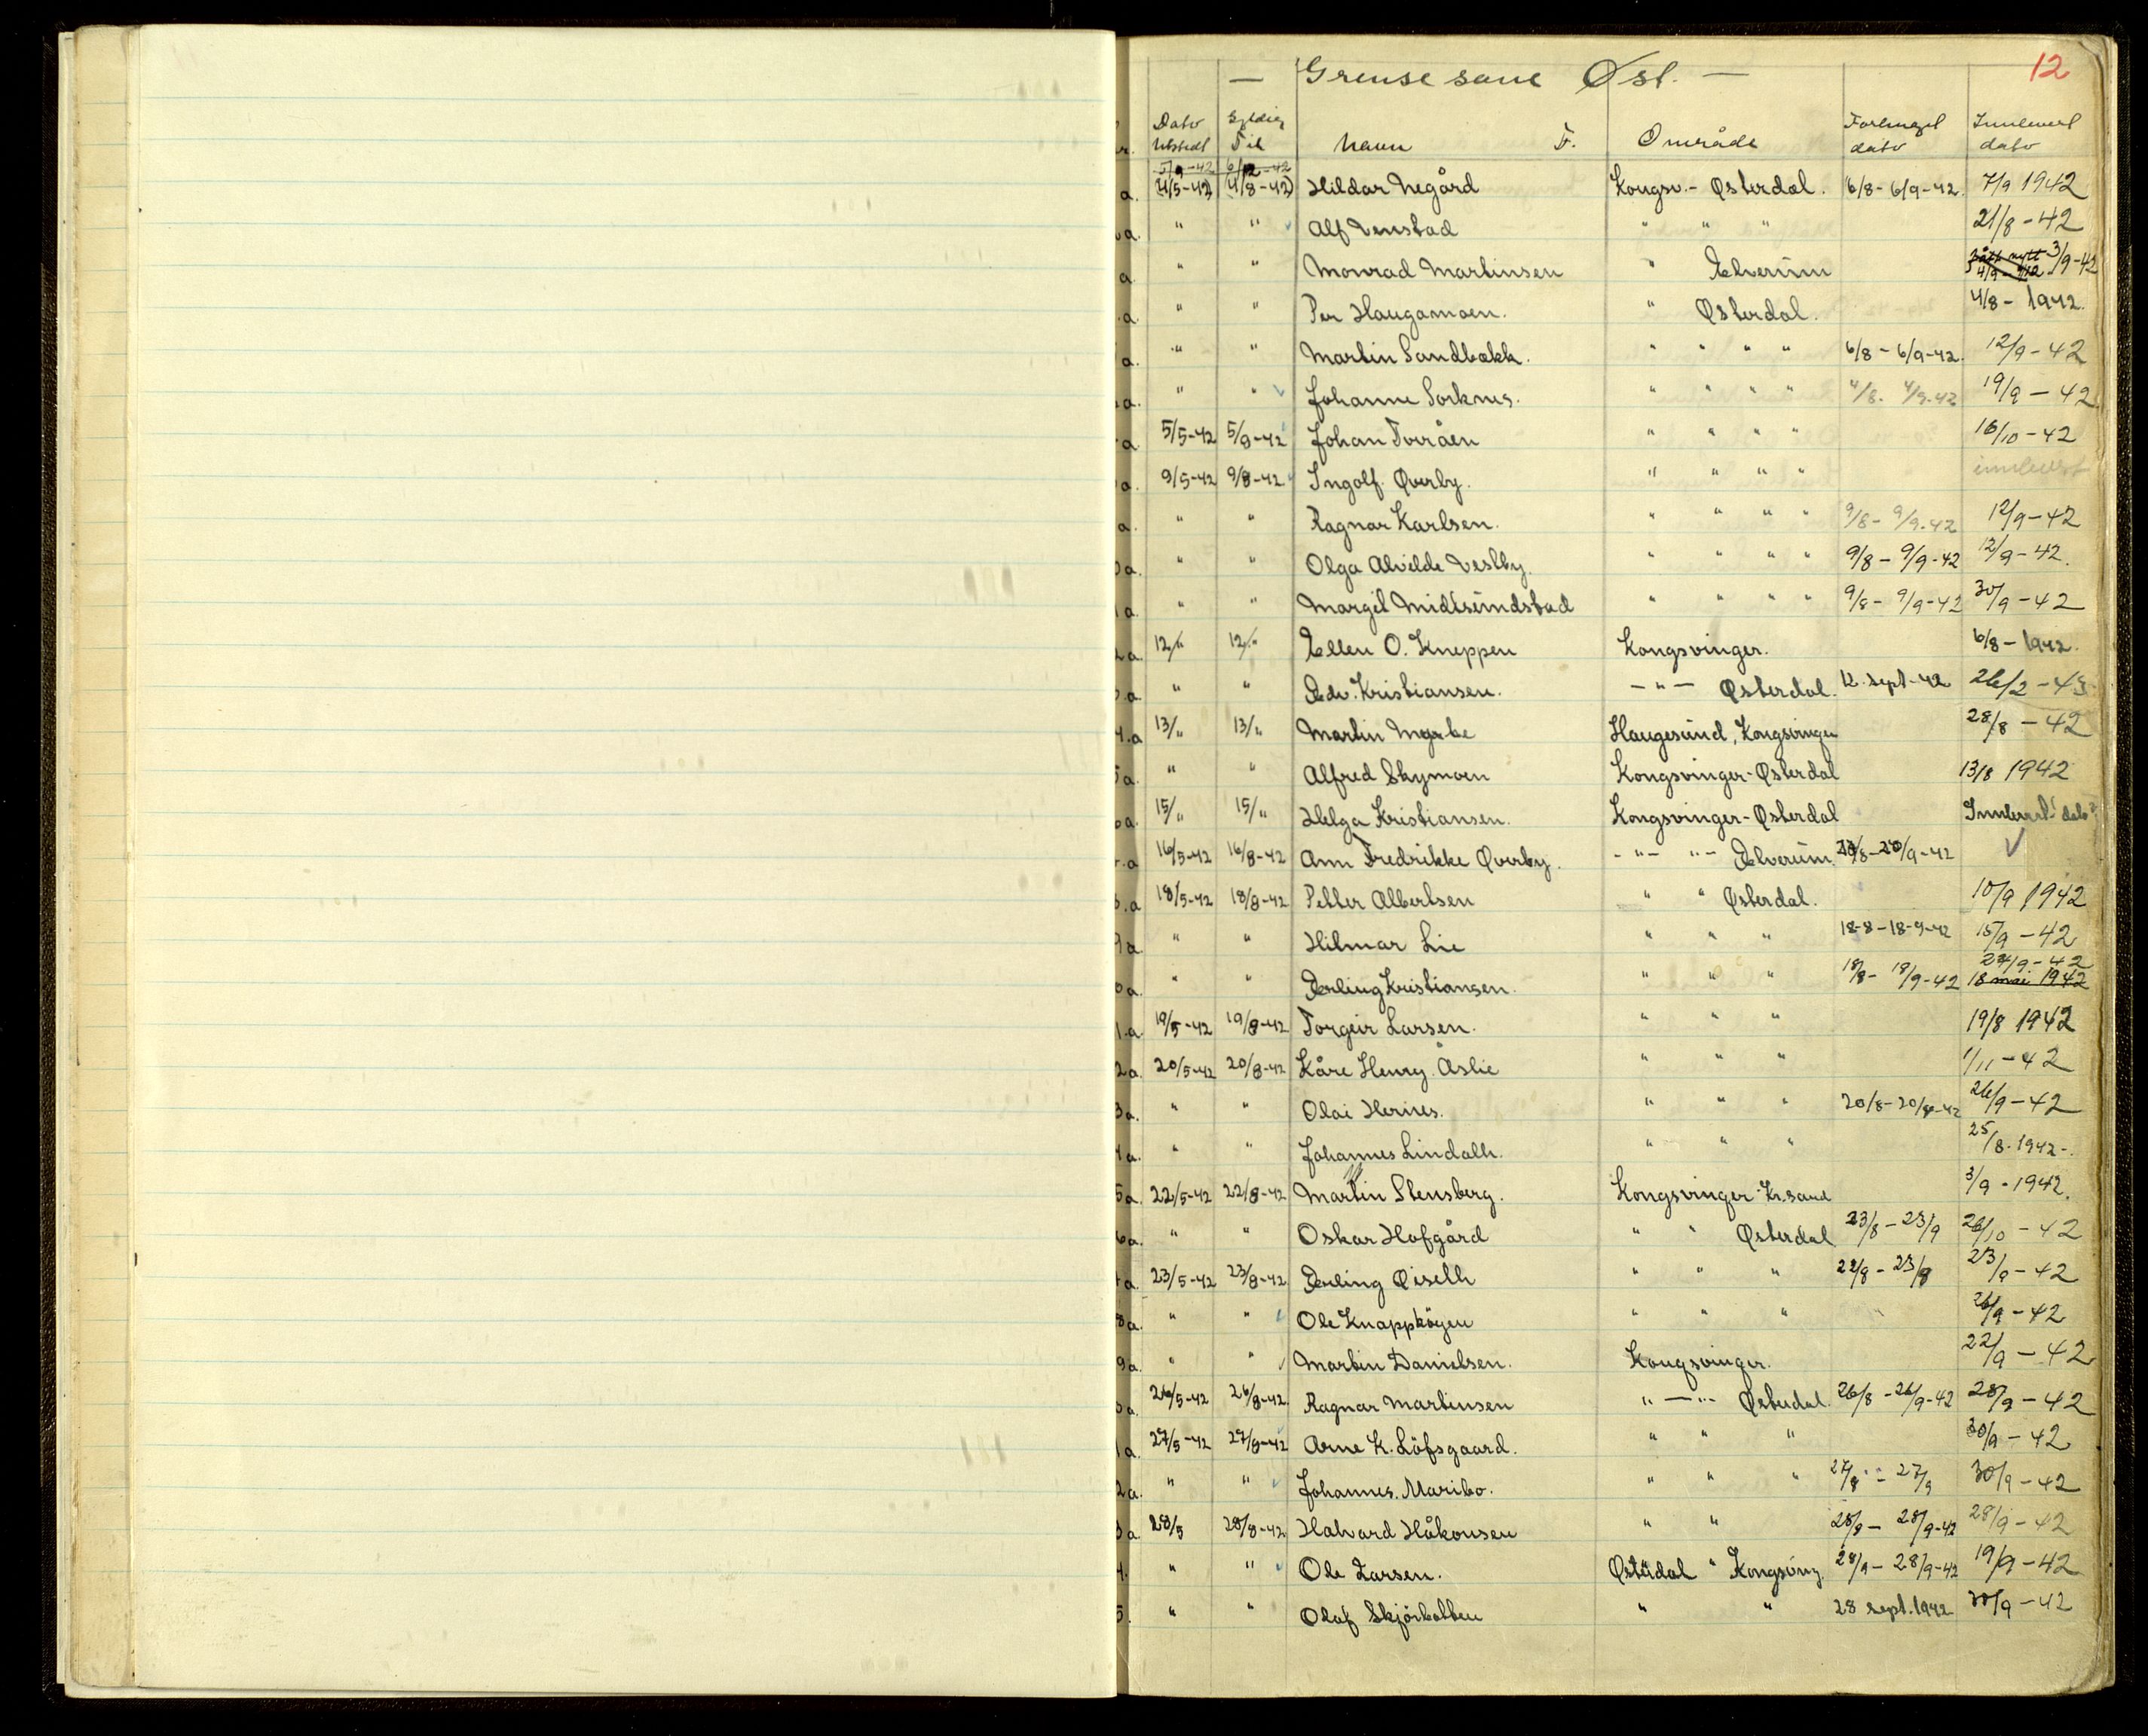 12
— Grense sone Øst. —
r. Dato utstedt Gyldig Til Navn F. Område Forlenget dato Innlevert dato
5/9-42 6/12-42
a. (4/5-42) (4/8-42) Hildar Negård Kongsv.- Østerdal. 6/8-6/9-42. 7/9 1942
a. " " Alf Venstad " " " 21/8-42
a. " " Monrad Martinsen " Elverum 3/9-42
a. " " Per Haugamoen. " Østerdal. 4/8-1942.
a. " " Martin Sandbakk. " " " " 6/8-6/9-42. 12/9-42
a. " " Johanne Sorknes. " " " " 4/8. 4/9-42 19/9-42
a 5/5-42 5/9-42 Johan Torråen " " " " 16/10-42
a. 9/5-42 9/8-42 Ingolf Øverby. " " " " innlevert
a. " " Ragnar Karlsen. " " " " 9/8-9/9-42 12/9-42
a. " " Olga Alvilde Vestby. " " " " 9/8-9/9-42 12/9-42.
1a. " " Margit Midtsundstad " " " " 9/8-9/9-42 30/9-42
2a. 12/" 12/" Ellen O. Kneppen Kongsvinger. 6/8-1942.
a. " " Edv. Kristiansen. -"- Østerdal. 12. sept-42 26/2-43
4.a 13/" 13/" Martin Haugesund, Kongsvinger 28/8-42
5a. " " Alfred Skymoen Kongsvinger-Østerdal 13/8 1942
a. 15/" 15/" Helga Kristiansen. Kongsvinger-Østerdal Innlevert! dato?
a 16/5-42 16/8-42 Ann Fredrikke Øverby. -"- "- Elverum. 20/8-20/9-42 ✓
.a 18/5-42 18/8-42 Petter Albertsen " " Østerdal. 10/9 1942
9a. " " Hilmar Lie " " " 18-8-18-9-42 15/9-42
24/9-42
0a. " " Erling Kristiansen. " " " 18/8-18/9-42 18 mai 1942
1.a 19/5-42 19/8-42 Torgeir Larsen. " " " 19/8 1942
2a. 20/5-42 20/8-42 Kåre Henry Åslie " " " 1/11-42
3a. " " Olai Hernes. " " " 20/8-20/9-42 26/9-42
4a. " " Johannes Lindalh. " " " 25/8-1942-.
5a. 22/5-42 22/8-42 Martin Stensberg. Kongsvinger-Kr.sand 3/9-1942.
6a. " " Oskar Hofgård " " Østerdal 23/8-23/9 26/10-42
a. 23/5-42 23/8-42 Erling Qiselh " " " 22/8-23/9 23/9-42
8a. " " Ole Knapphögen " " " 26/9-42
9a. " " Martin Danielsen. Kongsvinger. 22/9-42
a. 26/5-42 26/8-42. Ragnar Martinsen "—"- Østerdal. 26/8-26/9-42 28/9-42
1a 27/5-42 27/8-42 Arne K. Löfsgaard. " " " 30/9-42
2a. " " Johannes. Maribo. " " " 27/8-27/9 30/9-42
3a 28/5 28/8-42 Halvard Håkonsen " " 28/8-28/9-42 28/9-42
4. " " Ole Larsen. Østerdal " Kongsving. 28/8-28/9-42 19/9-42
5. " " Olaf Skjörbotten " " 28 sept. 1942 30/9-42